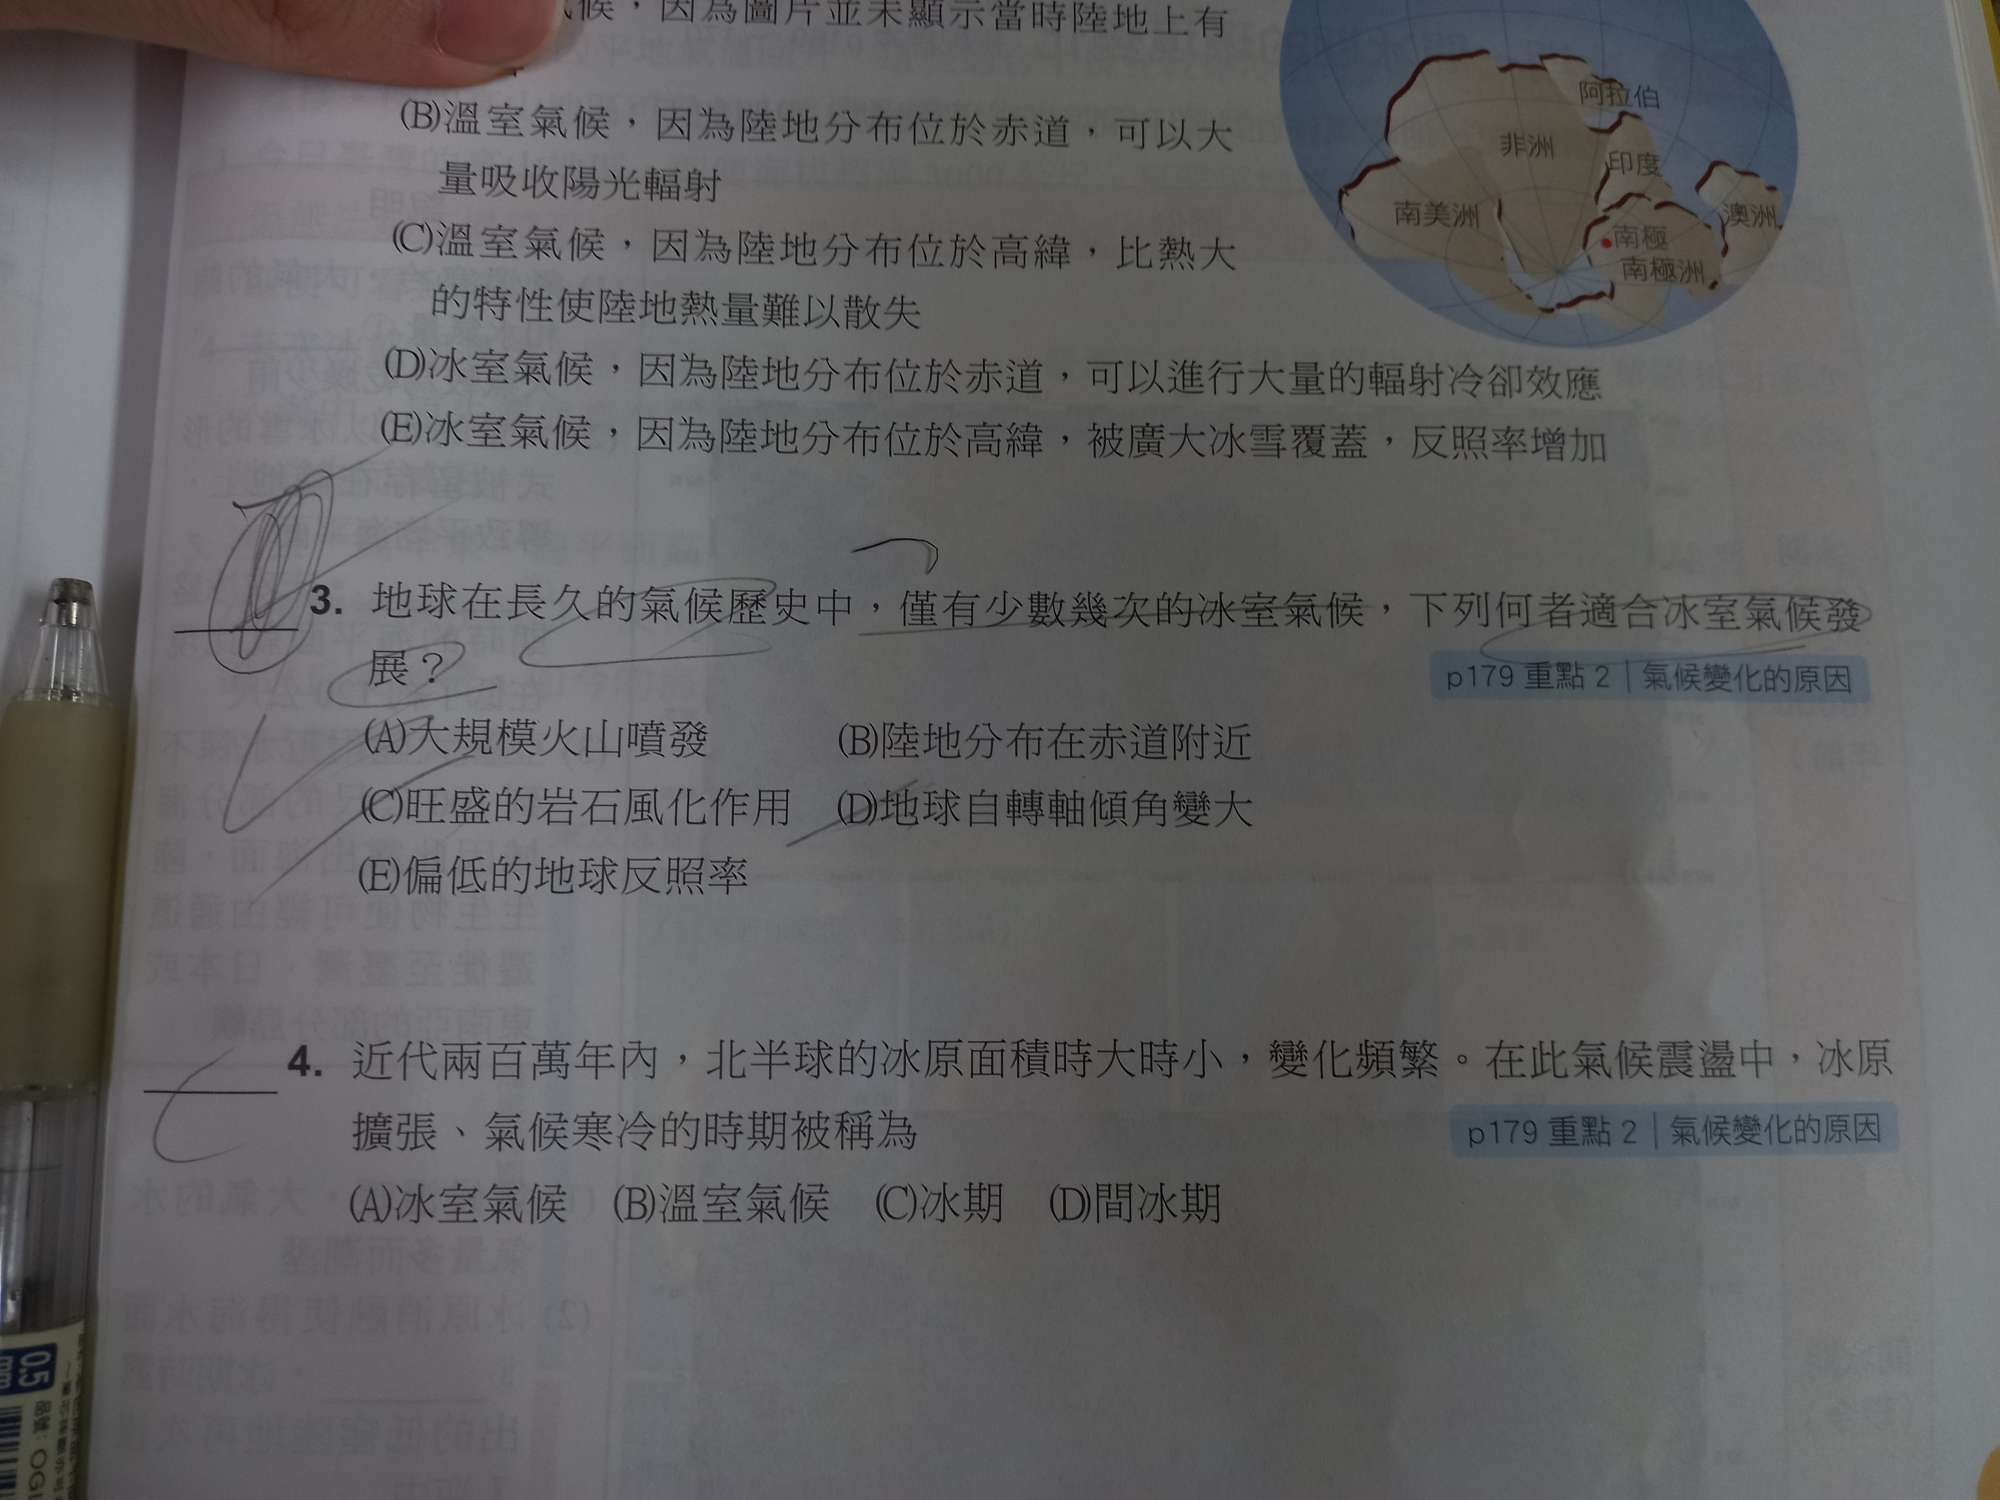 候，因為圖片並未顯示當時陸地上有
(B)溫室氣候，因為陸地分布位於赤道，可以大
量吸收陽光輻射
(C)溫室氣候，因為陸地分布位於高緯，比熱大
的特性使陸地熱量難以散失
(D)冰室氣候，因為陸地分布位於赤道，可以進行大量的輻射冷卻效應
(E)冰室氣候，因為陸地分布位於高緯，被廣大冰雪覆蓋，反照率增加
阿拉伯
非洲
印度
南美洲
澳洲
南極
南極洲
3. 地球在長久的氣候歷史中，僅有少數幾次的冰室氣候，下列何者適合冰室氣候發
展？
p179 重點 2｜氣候變化的原因
(A)大規模火山噴發 (B)陸地分布在赤道附近
(C)旺盛的岩石風化作用 (D)地球自轉軸傾角變大
(E)偏低的地球反照率
4. 近代兩百萬年內，北半球的冰原面積時大時小，變化頻繁。在此氣候震盪中，冰原
擴張、氣候寒冷的時期被稱為
p179 重點 2｜氣候變化的原因
(A)冰室氣候 (B)溫室氣候 (C)冰期 (D)間冰期
0.5